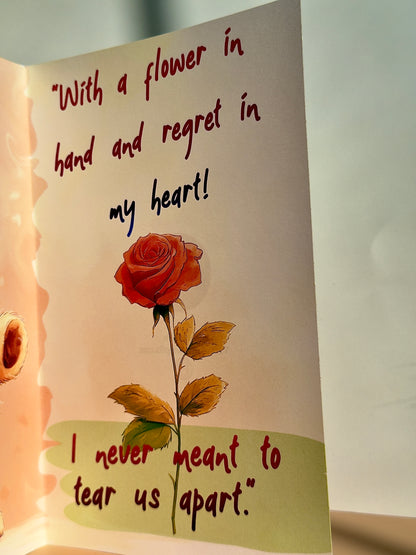 "With a flower in
hand and regret in
my heart!
I never meant to
tear us apart."